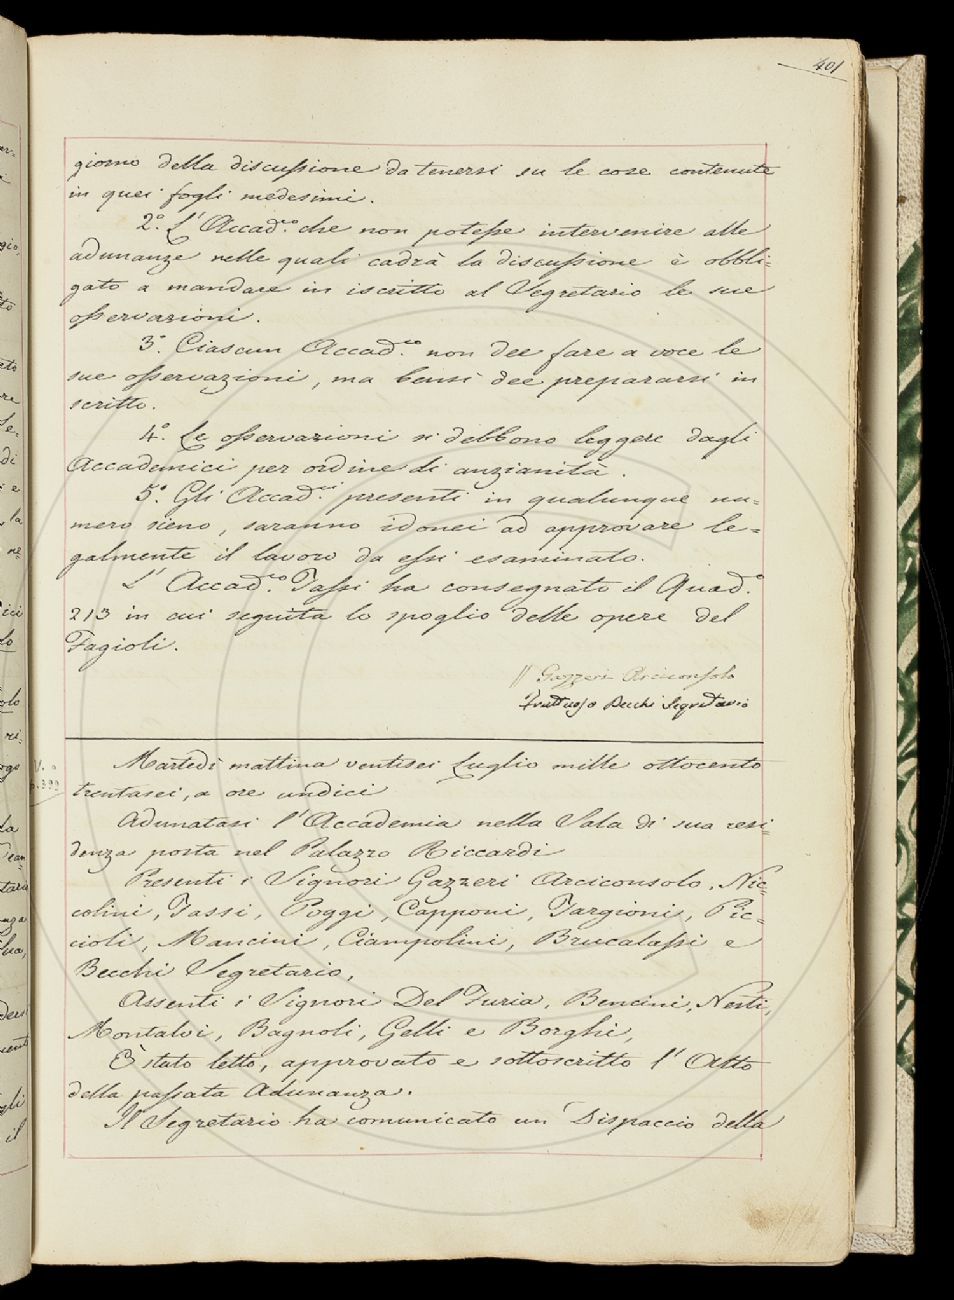 401
giorno della discussione da tenersi su le cose contenute
in quei fogli medesimi.
2.° L'Accad.co che non potesse intervenire alle
adunanze nelle quali cadrà la discussione è obbli=
gato a mandare in iscritto al Segretario le sue
osservazioni.
3.° Ciascun Accad.co non dee fare a voce le
sue osservazioni, ma bensì dee prepararsi in
scritto.
4.° Le osservazioni si debbono leggere dagli
Accademici per ordine di anzianità.
5.° Gli Accad.ci presenti in qualunque nu=
mero sieno, saranno idonei ad approvare le=
galmente il lavoro da essi esaminato.
L'Accad.co Tassi ha consegnato il Quad.°
213 in cui seguita lo spoglio delle opere del
Fagioli.
// Gazzeri Arciconsolo
Fruttuoso Becchi Segretario
V. a
p. 399
Martedì mattina ventisei Luglio mille ottocento
trentasei, a ore undici
Adunatasi l'Accademia nella Sala di sua resi=
denza posta nel Palazzo Riccardi
Presenti i Signori Gazzeri Arciconsolo, Nic=
colini, Tassi, Poggi, Capponi, Targioni, Pic=
cioli, Mancini, Ciampolini, Brucalassi e
Becchi Segretario,
Assenti i Signori Del Furia, Bencini, Nesti,
Montalvi, Bagnoli, Gelli e Borghi,
È stato letto, approvato e sottoscritto l'Atto
della passata Adunanza.
Il Segretario ha comunicato un Dispaccio della